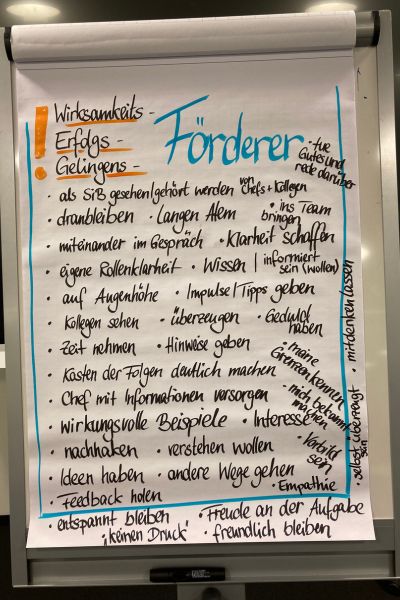 ! Wirksamkeits -
Erfolgs -
Gelingens -
Förderer
· tue
Gutes und
rede darüber
· als SiB gesehen/gehört werden von Chefs + Kollegen
· dranbleiben · Langen Atem · ins Team bringen
· miteinander im Gespräch · Klarheit schaffen
· eigene Rollenklarheit · Wissen | informiert sein (wollen)
· auf Augenhöhe · Impulse/Tipps geben
· Kollegen sehen · überzeugen · Geduld haben
· Zeit nehmen · Hinweise geben
· Kosten der Folgen deutlich machen
· Chef mit Informationen versorgen
· wirkungsvolle Beispiele · Interesse
· nachhaken · verstehen wollen
· Ideen haben · andere Wege gehen
· Feedback holen · Empathie
· entspannt bleiben · Freude an der Aufgabe
· "keinen Druck" · freundlich bleiben
· meine
Grenzen kennen
· mich bekannt
machen
· Vorbild
sein
· selbst überzeugt sein
· mitdenken lassen